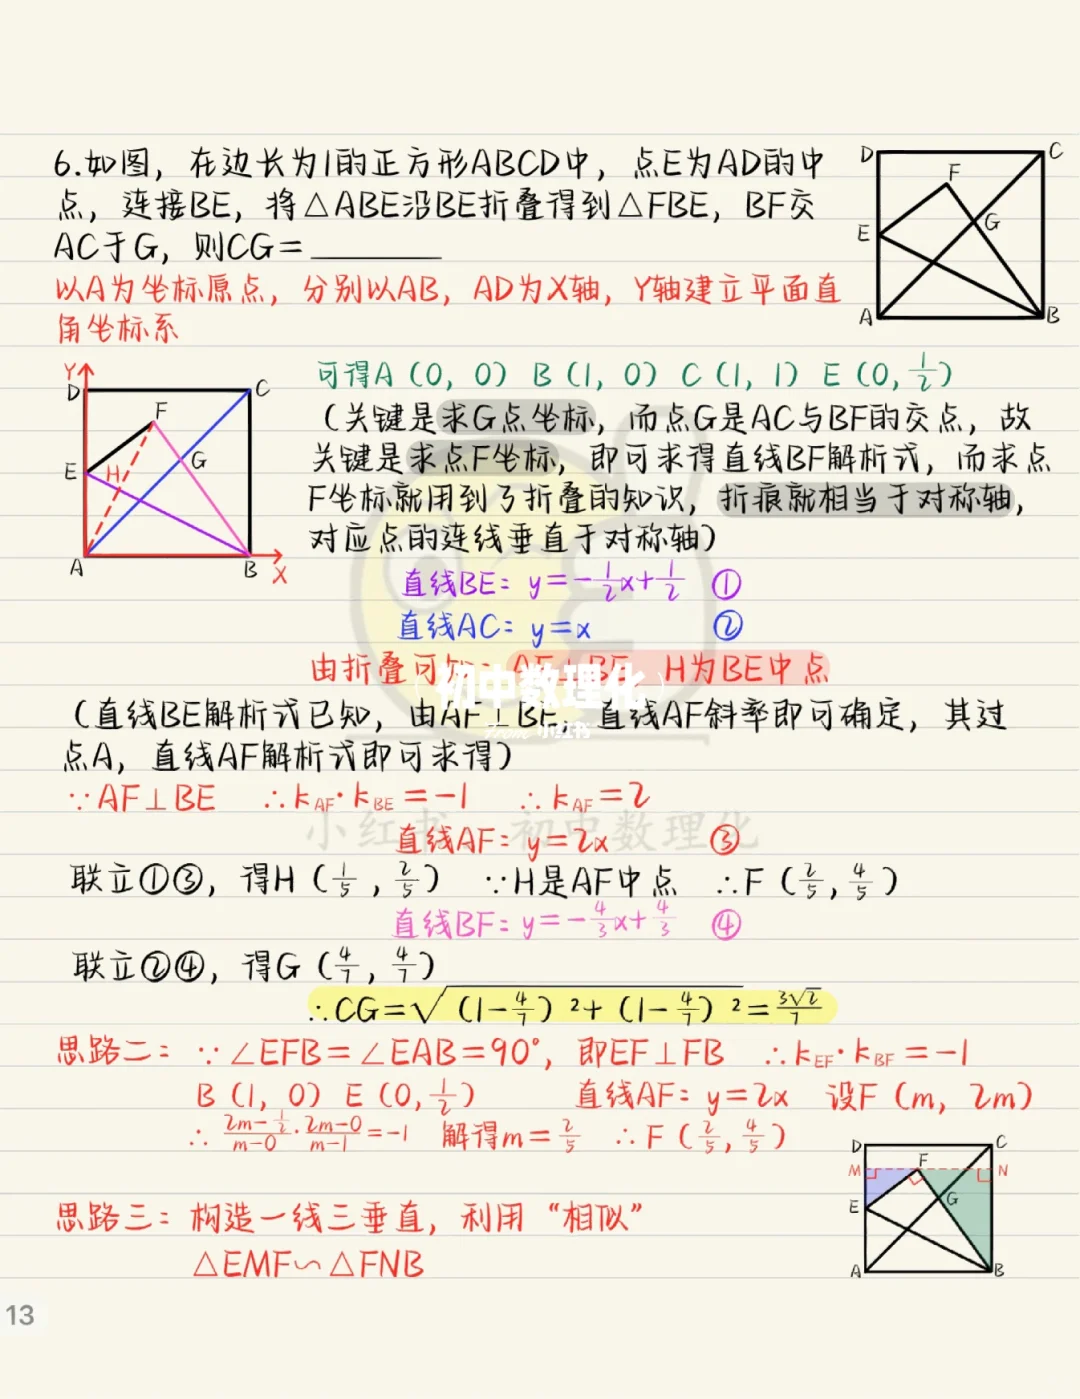 6.如图，在边长为1的正方形ABCD中，点E为AD的中
点，连接BE，将△ABE沿BE折叠得到△FBE，BF交
AC于G，则CG=______
D C F G E A B
以A为坐标原点，分别以AB，AD为X轴，Y轴建立平面直
角坐标系
Y D C F E H G A B X
可得A（0，0）B（1，0）C（1，1）E（0，1/2）
（关键是求G点坐标，而点G是AC与BF的交点，故
关键是求点F坐标，即可求得直线BF解析式，而求点
F坐标就用到了折叠的知识，折痕就相当于对称轴，
对应点的连线垂直于对称轴）
直线BE：y=-1/2x+1/2 ①
直线AC：y=x ②
由折叠可知：AF⊥BE H为BE中点
初中数理化
From 小红书
（直线BE解析式已知，由AF⊥BE，直线AF斜率即可确定，其过
点A，直线AF解析式即可求得）
∵AF⊥BE ∴kAF·kBE=-1 ∴kAF=2
小红书 初中数理化
直线AF：y=2x ③
联立①③，得H（1/5，2/5） ∵H是AF中点 ∴F（2/5，4/5）
直线BF：y=-4/3x+4/3 ④
联立②④，得G（4/7，4/7）
∴CG=√（1-4/7）²+（1-4/7）²=3√2/7
思路二：∵∠EFB=∠EAB=90°，即EF⊥FB ∴kEF·kBF=-1
B（1，0）E（0，1/2） 直线AF：y=2x 设F（m，2m）
∴ 2m-1/2/m-0·2m-0/m-1=-1 解得m=2/5 ∴F（2/5，4/5）
D C M F N E G A B
思路三：构造一线三垂直，利用“相似”
△EMF∽△FNB
13